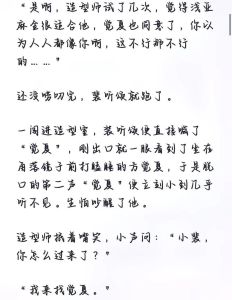 “是啊，造型师试了几次，觉得浅亚
麻金很适合他，觉夏也同意了，你以
为人人都像你啊，这不行那不行
的……”
还没唠叨完，裴听颂就跑了。
一闯进造型室，裴听颂便直接喊了
“觉夏”，刚出口就一眼看到了坐在
角落镜子前打瞌睡的方觉夏，于是脱
口的第二声“觉夏”便立刻小到几乎
听不见。生怕吵醒了他。
造型师抿着嘴笑，小声问：“小裴，
你怎么过来了？”
“我来找觉夏。”